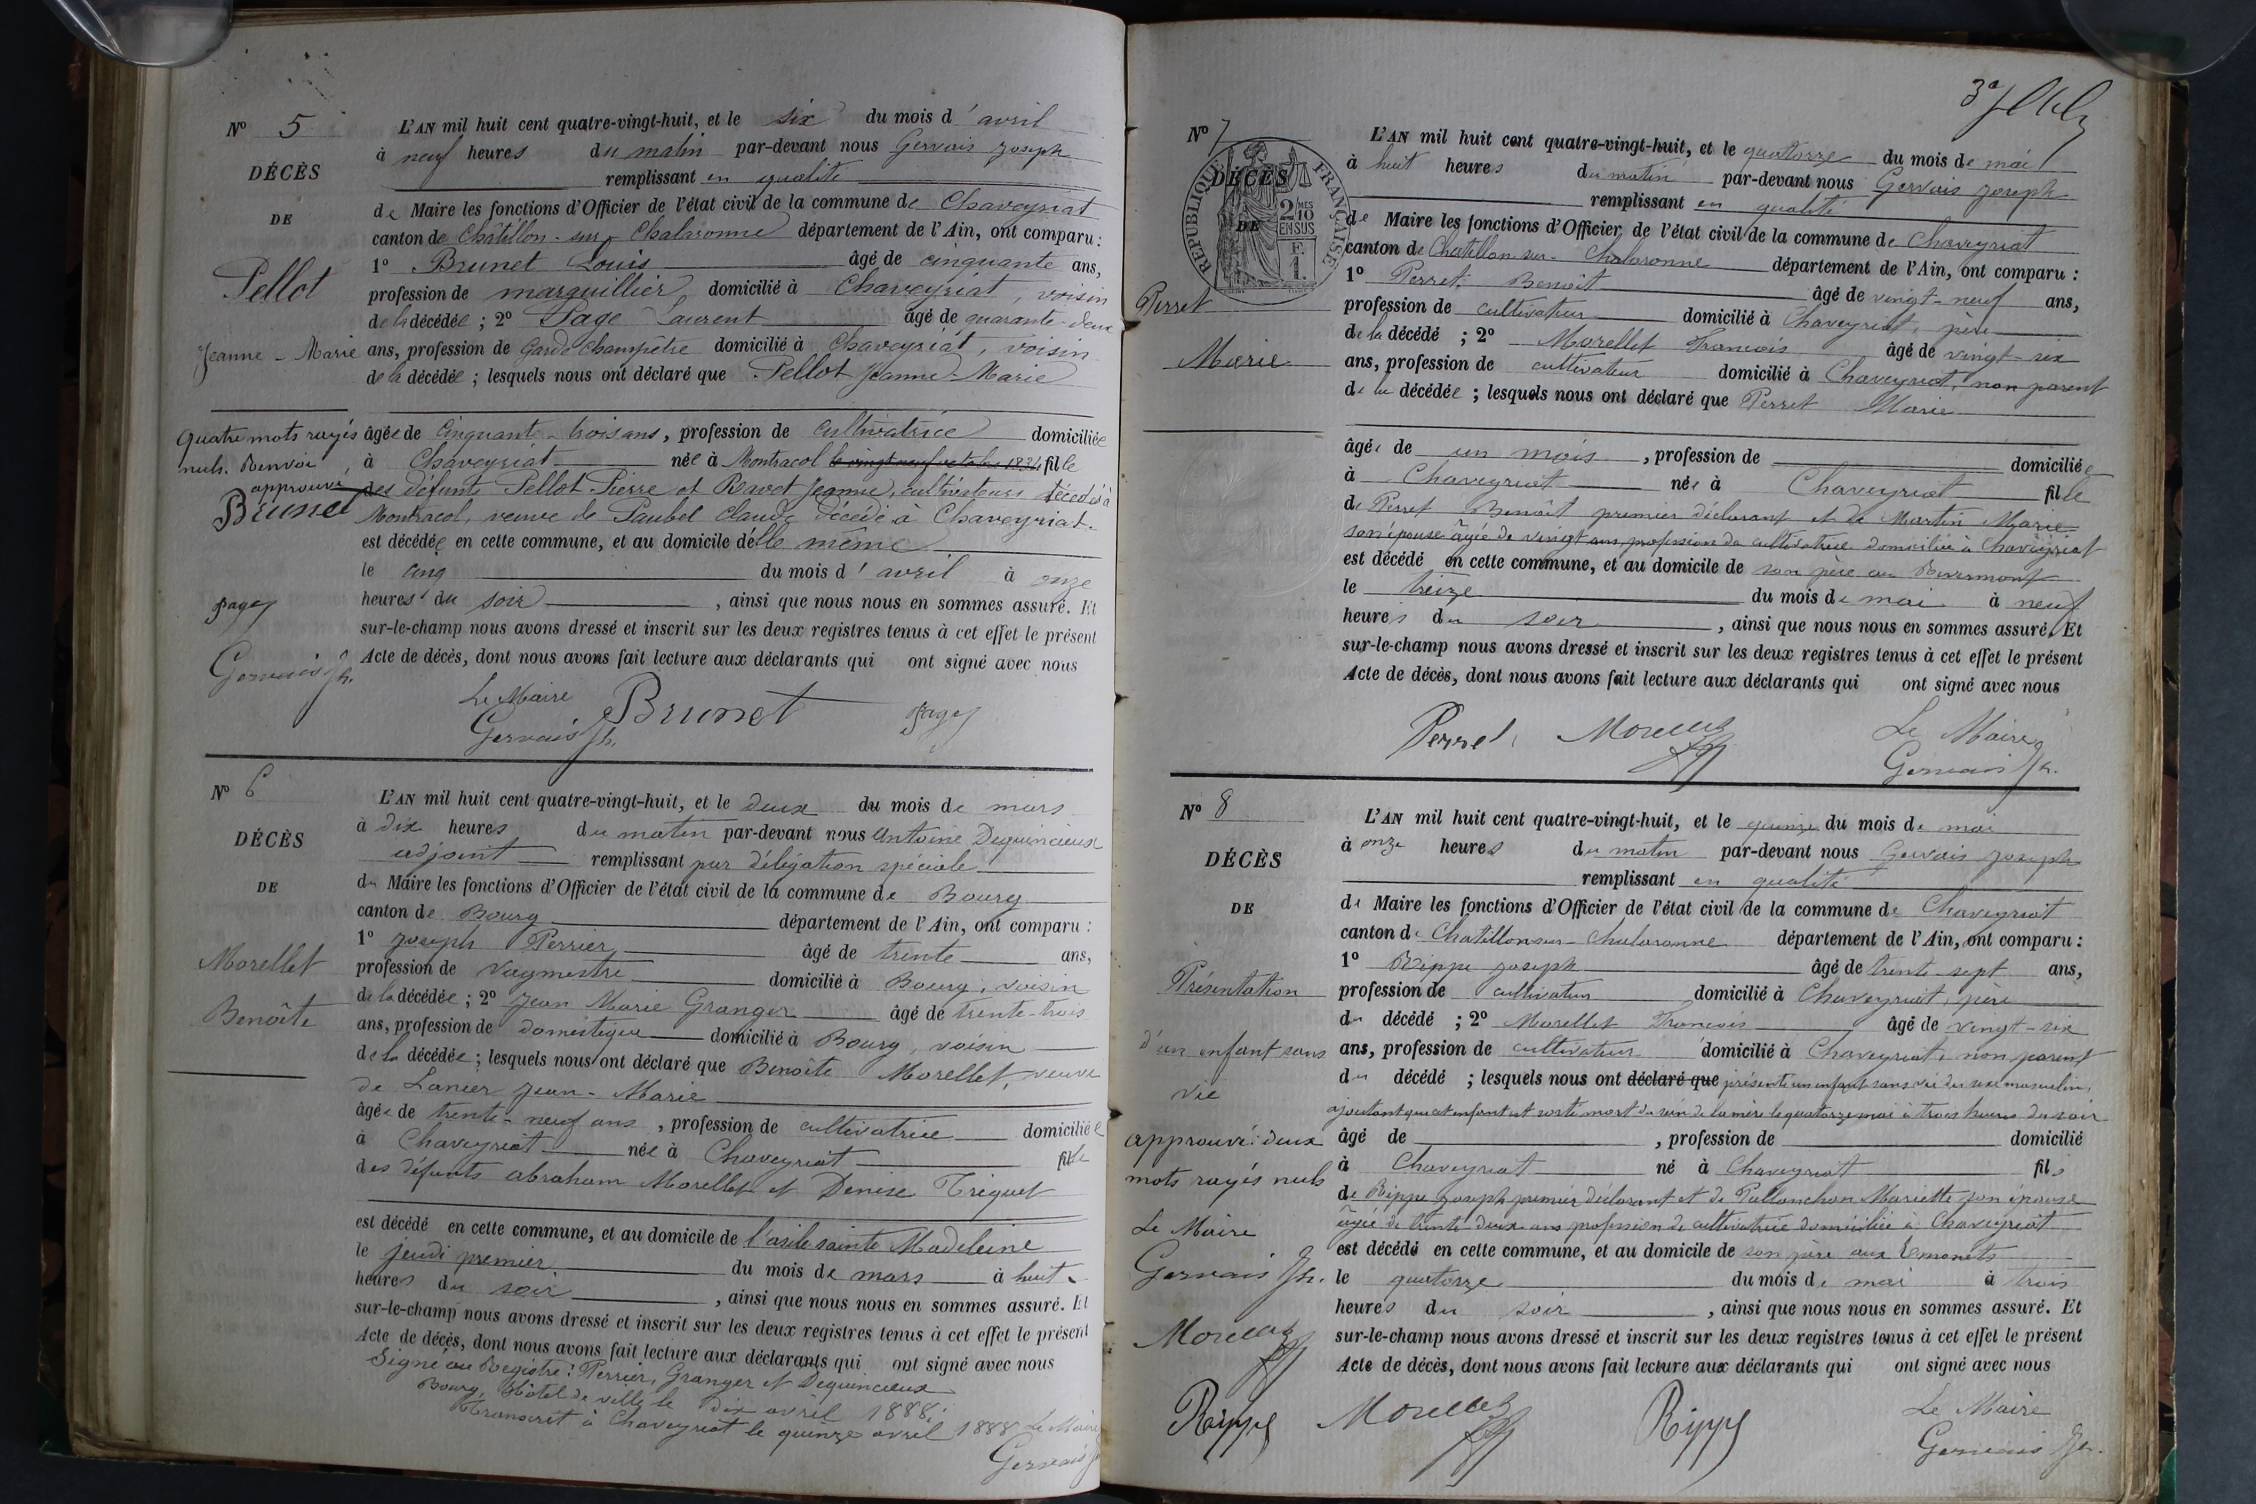 N° 5
DÉCÈS
DE
Pellot
Jeanne-Marie
quatre mots rayés
nuls. Renvoi
approuvé
Brunet
Page
Gervais Jh.
L'AN mil huit cent quatre-vingt-huit, et le six du mois d'avril
à neuf heures du matin par-devant nous Gervais Joseph
remplissant en qualité
de Maire les fonctions d'Officier de l'état civil de la commune de Chaveyriat
canton de Châtillon-sur-Chalaronne département de l'Ain, ont comparu :
1° Brunet Louis âgé de cinquante ans,
profession de marguillier domicilié à Chaveyriat, voisin
de la décédée ; 2° Page Laurent âgé de quarante-deux
ans, profession de Garde champêtre domicilié à Chaveyriat, voisin
de la décédée ; lesquels nous ont déclaré que Pellot Jeanne-Marie
âgée de cinquante-trois ans, profession de cultivatrice domiciliée
à Chaveyriat née à Montracol le vingt neuf octobre 1834 fille
des défunts Pellot Pierre et Ravot Jeanne, cultivateurs décédés à
Montracol, veuve de Paubel Claude décédé à Chaveyriat.
est décédée en cette commune, et au domicile d'elle même
le cinq du mois d'avril à onze
heures du soir, ainsi que nous nous en sommes assuré. Et
sur-le-champ nous avons dressé et inscrit sur les deux registres tenus à cet effet le présent
Acte de décès, dont nous avons fait lecture aux déclarants qui ont signé avec nous
Le Maire
Gervais Jh.
Brunet
Page
N° 6
DÉCÈS
DE
Morellet
Benoîte
L'AN mil huit cent quatre-vingt-huit, et le deux du mois de mars
à dix heures du matin par-devant nous Antoine Dequincieux
adjoint remplissant par délégation spéciale
du Maire les fonctions d'Officier de l'état civil de la commune de Bourg
canton de Bourg département de l'Ain, ont comparu :
1° Joseph Perrier âgé de trente ans,
profession de Vaguemestre domicilié à Bourg, voisin
de la décédée ; 2° Jean Marie Granger âgé de trente-trois
ans, profession de domestique domicilié à Bourg, voisin
de la décédée ; lesquels nous ont déclaré que Benoîte Morellet, veuve
de Lancer Jean-Marie
âgée de trente-neuf ans, profession de cultivatrice domiciliée
à Chaveyriat née à Chaveyriat fille
des défunts abraham Morellet et Denise Tréquet
est décédé en cette commune, et au domicile de l'asile sainte Madeleine
le jeudi premier du mois de mars à huit
heures du soir, ainsi que nous nous en sommes assuré. Et
sur-le-champ nous avons dressé et inscrit sur les deux registres tenus à cet effet le présent
Acte de décès, dont nous avons fait lecture aux déclarants qui ont signé avec nous
Signé au Registre : Perrier, Granger et Dequincieux
Bourg, Hôtel de ville le dix avril 1888.
Transcrit à Chaveyriat le quinze avril 1888 Le Maire
Gervais
N° 7
DÉCÈS
DE
RÉPUBLIQUE FRANÇAISE
2 MES
10
EN SUS
F.
1.
Perret
Marie
L'AN mil huit cent quatre-vingt-huit, et le quatorze du mois de mai
à huit heures du matin par-devant nous Gervais Joseph
remplissant en qualité
de Maire les fonctions d'Officier de l'état civil de la commune de Chaveyriat
canton de Chatillon-sur-Chalaronne département de l'Ain, ont comparu :
1° Perret Benoit âgé de vingt-neuf ans,
profession de cultivateur domicilié à Chaveyriat, père
de la décédé ; 2° Morellet Francois âgé de vingt-six
ans, profession de cultivateur domicilié à Chaveyriat, non parent
de la décédée ; lesquels nous ont déclaré que Perret Marie
âgée de un mois, profession de domiciliée
à Chaveyriat née à Chaveyriat fille
de Perret Benoit premier déclarant et de Martin Marie
son épouse âgée de vingt ans, profession de cultivatrice domiciliée à Chaveyriat
est décédé en cette commune, et au domicile de son père au Revermont
le treize du mois de mai à neuf
heures du soir, ainsi que nous nous en sommes assuré. Et
sur-le-champ nous avons dressé et inscrit sur les deux registres tenus à cet effet le présent
Acte de décès, dont nous avons fait lecture aux déclarants qui ont signé avec nous
Perret
Morellet
Le Maire
Gervais Jh.
N° 8
DÉCÈS
DE
Présentation
d'un enfant sans
vie
approuvé : deux
mots rayés nuls
Le Maire
Gervais Jh.
Morellet
Rippe
L'AN mil huit cent quatre-vingt-huit, et le quinze du mois de mai
à onze heures du matin par-devant nous Gervais Joseph
remplissant en qualité
de Maire les fonctions d'Officier de l'état civil de la commune de Chaveyriat
canton de Chatillon-sur-Chalaronne département de l'Ain, ont comparu :
1° Rippe Joseph âgé de trente-sept ans,
profession de cultivateur domicilié à Chaveyriat, père
du décédé ; 2° Morellet Francois âgé de vingt-six
ans, profession de cultivateur domicilié à Chaveyriat, non parent
du décédé ; lesquels nous ont déclaré que présenté un enfant sans vie du sexe masculin,
ajoutant que cet enfant est sorti mort du sein de la mère le quatorze mai à trois heures du soir
âgé de, profession de domicilié
à Chaveyriat né à Chaveyriat fils
de Rippe Joseph premier déclarant et de Pallanchon Mariette son épouse
âgée de trente-deux ans profession de cultivatrice domiciliée à Chaveyriat
est décédé en cette commune, et au domicile de son père aux Emonets
le quatorze du mois de mai à trois
heures du soir, ainsi que nous nous en sommes assuré. Et
sur-le-champ nous avons dressé et inscrit sur les deux registres tenus à cet effet le présent
Acte de décès, dont nous avons fait lecture aux déclarants qui ont signé avec nous
Morellet
Rippe
Le Maire
Gervais Jh.